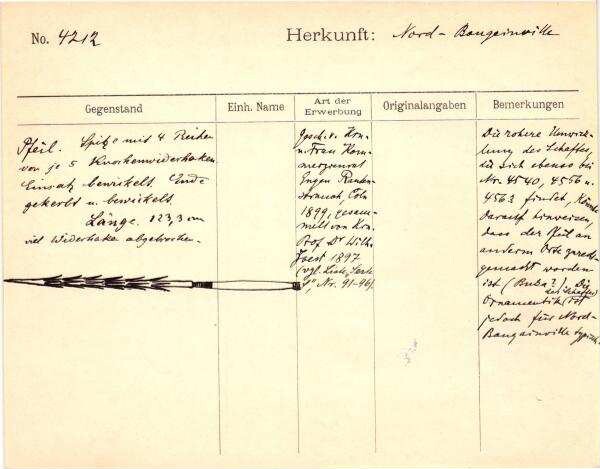 No. 4212
Herkunft: Nord-Bougainville
Gegenstand
Einh. Name
Art der
Erwerbung
Originalangaben
Bemerkungen
Pfeil. Spitze mit 4 Reihen
von je 5 Knochenwiderhaken
Einsatz bewickelt. Ende
gekerbt u. bewickelt.
Länge. 123,3 cm
viel Widerhaken abgebrochen.
Gesch. v. Hrn.
u. Frau Kom-
merzienrat
Eugen Rauten-
strauch, Cöln
1899, gesam-
melt von Hrn.
Prof Dr Wilh.
Joest 1897
(vgl. Liste, Joest
Nr. 91-96)
Die rohere Umwick-
lung des Schaftes,
die sich ebenso bei
Nr. 4540, 4556 u.
4563 findet, könnte
darauf hinweisen,
dass der Pfeil an
anderm Orte
gemacht worden
ist (Buka?). Die
Ornamentik des Schaftes ist
jedoch für Nord-
Bougainville typisch.